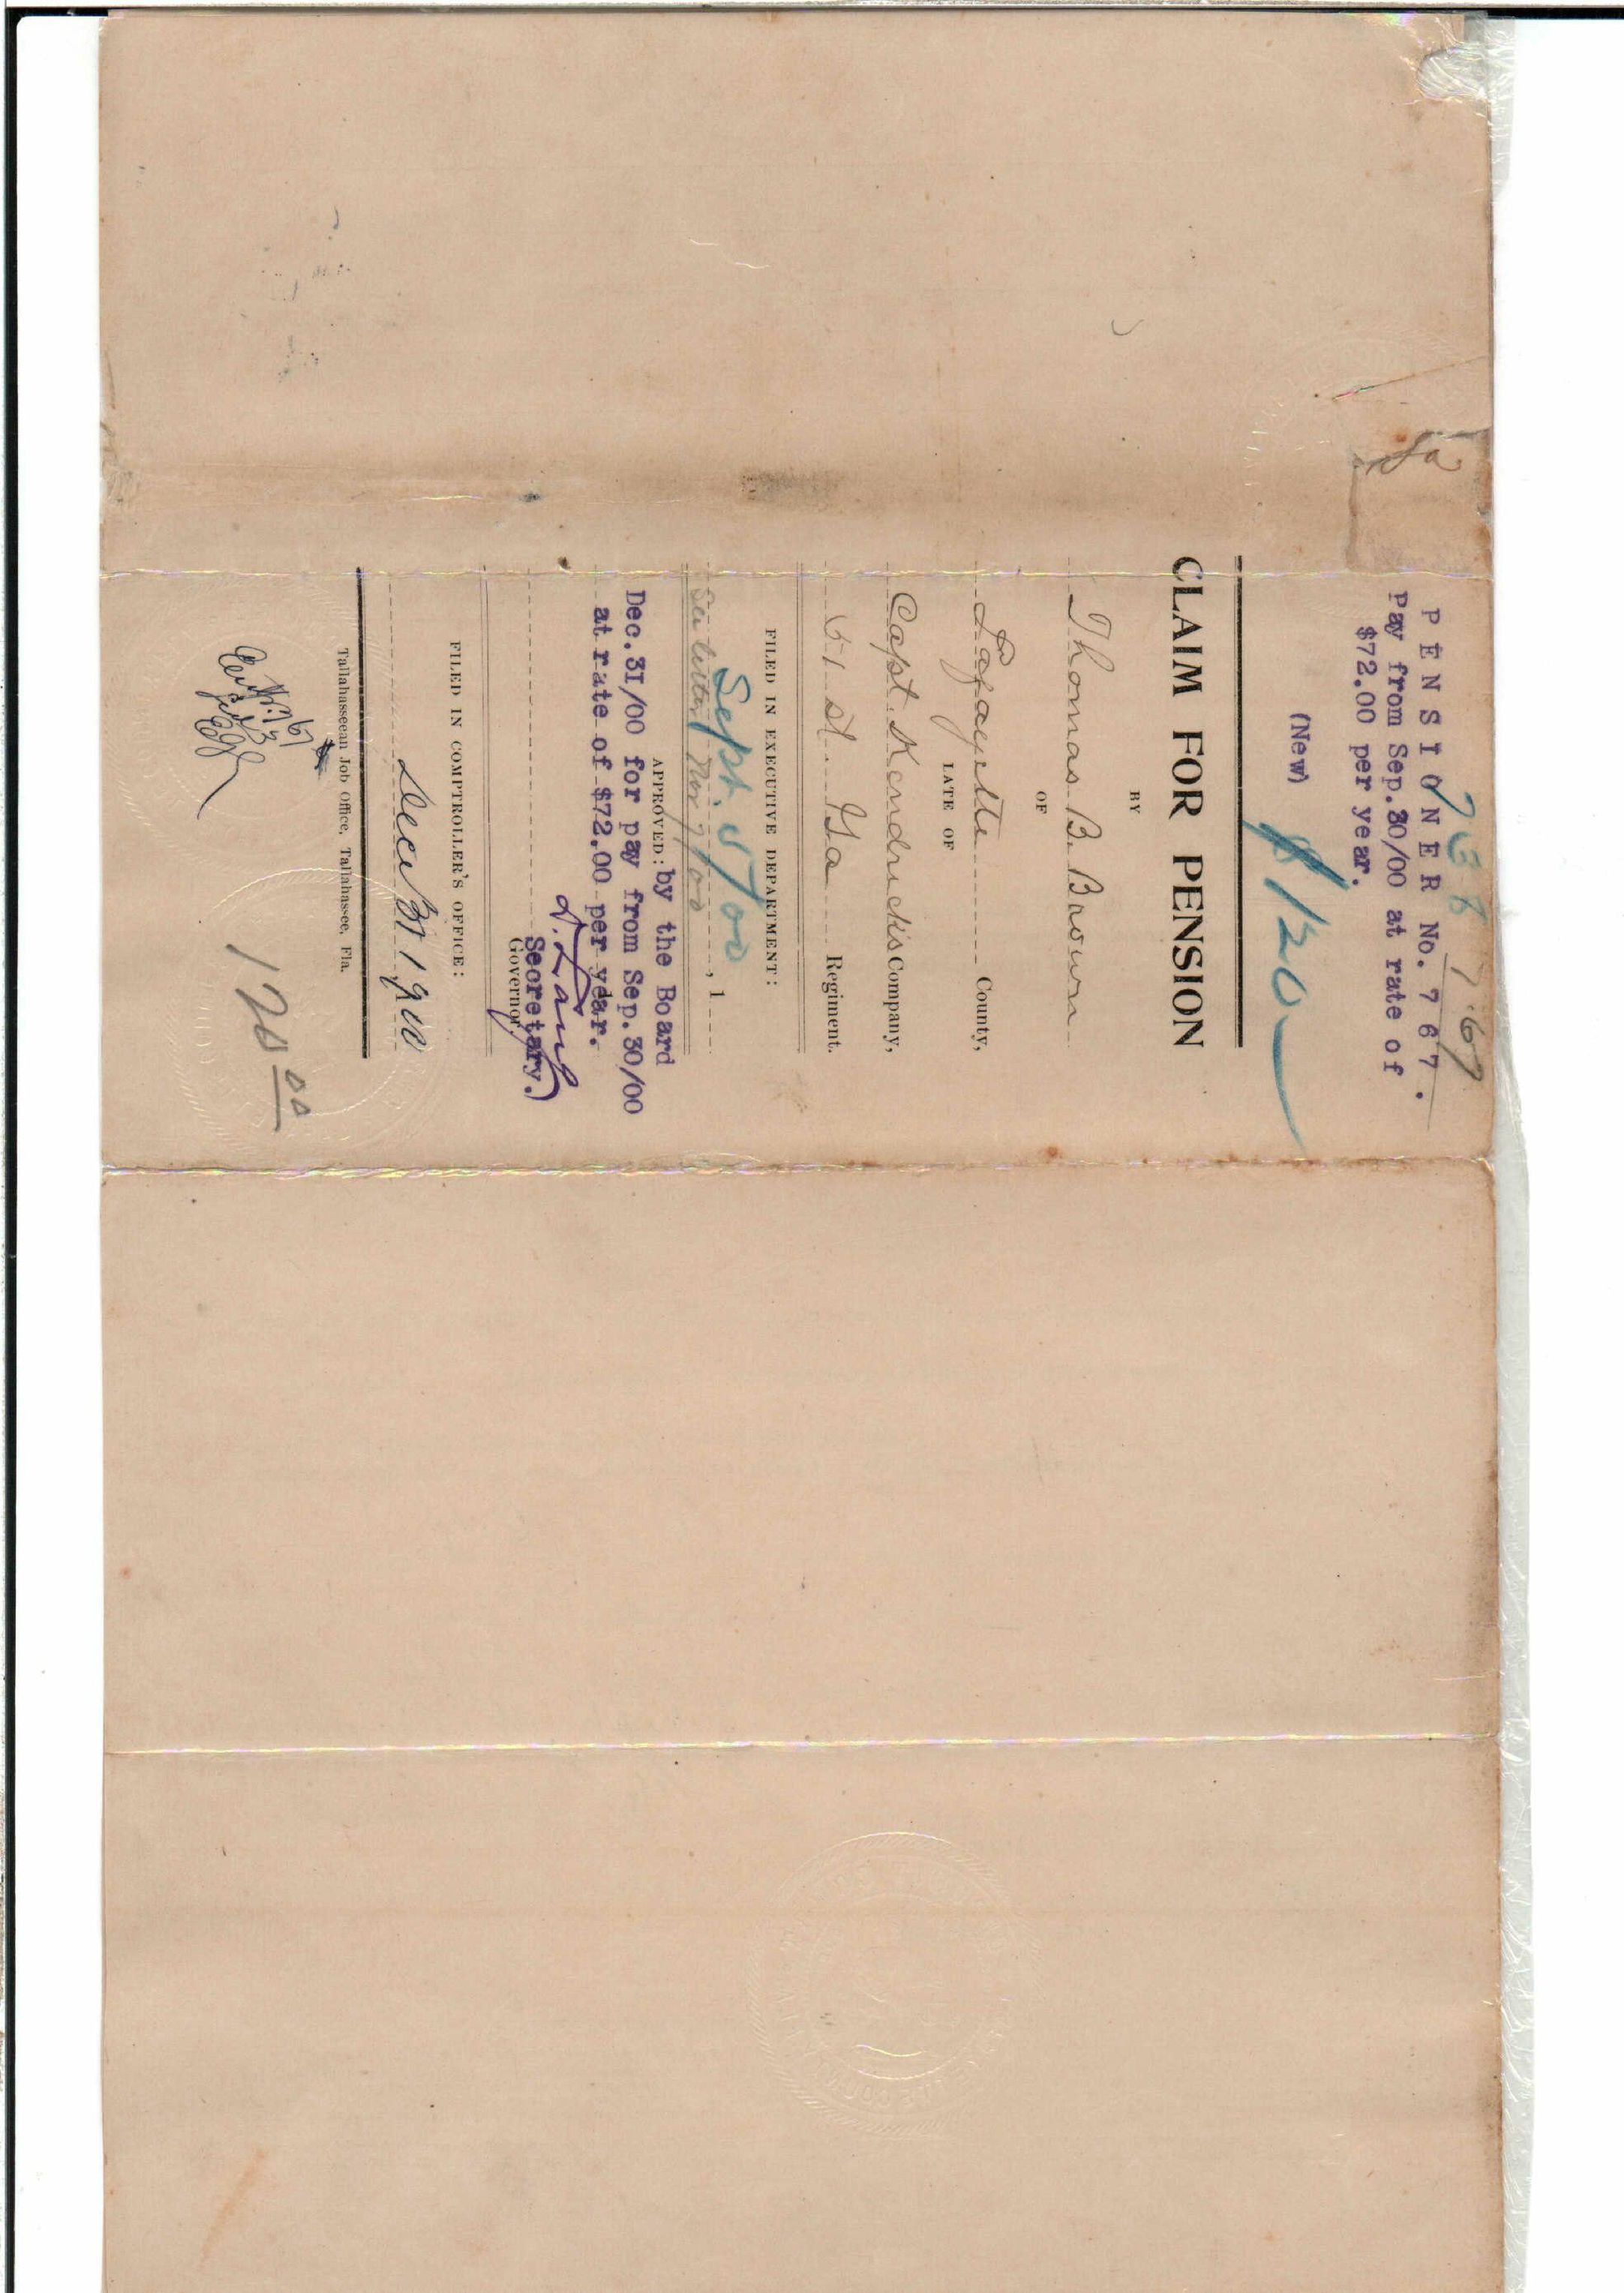 768 767
PENSIONER No. 767.
Pay from Sep.30/00 at rate of
$72.00 per year.
(New)
$120
CLAIM FOR PENSION
BY
Thomas B. Brown
OF
Lafayette County,
LATE OF
Capt. Kendrick's Company,
51 st Ga Regiment.
FILED IN EXECUTIVE DEPARTMENT:
Sept. 5/00, 1
Nov 7/00
APPROVED: by the Board
Dec.31/00 for pay from Sep.30/00
at rate of $72.00 per year.
D. Lang
Secretary.)
Governor.
FILED IN COMPTROLLER'S OFFICE:
Dec 31 1900
Tallahasseean Job Office, Tallahassee, Fla.
767
120 00